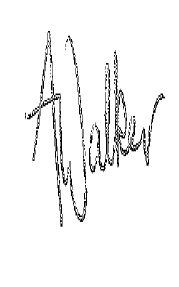 A Walker